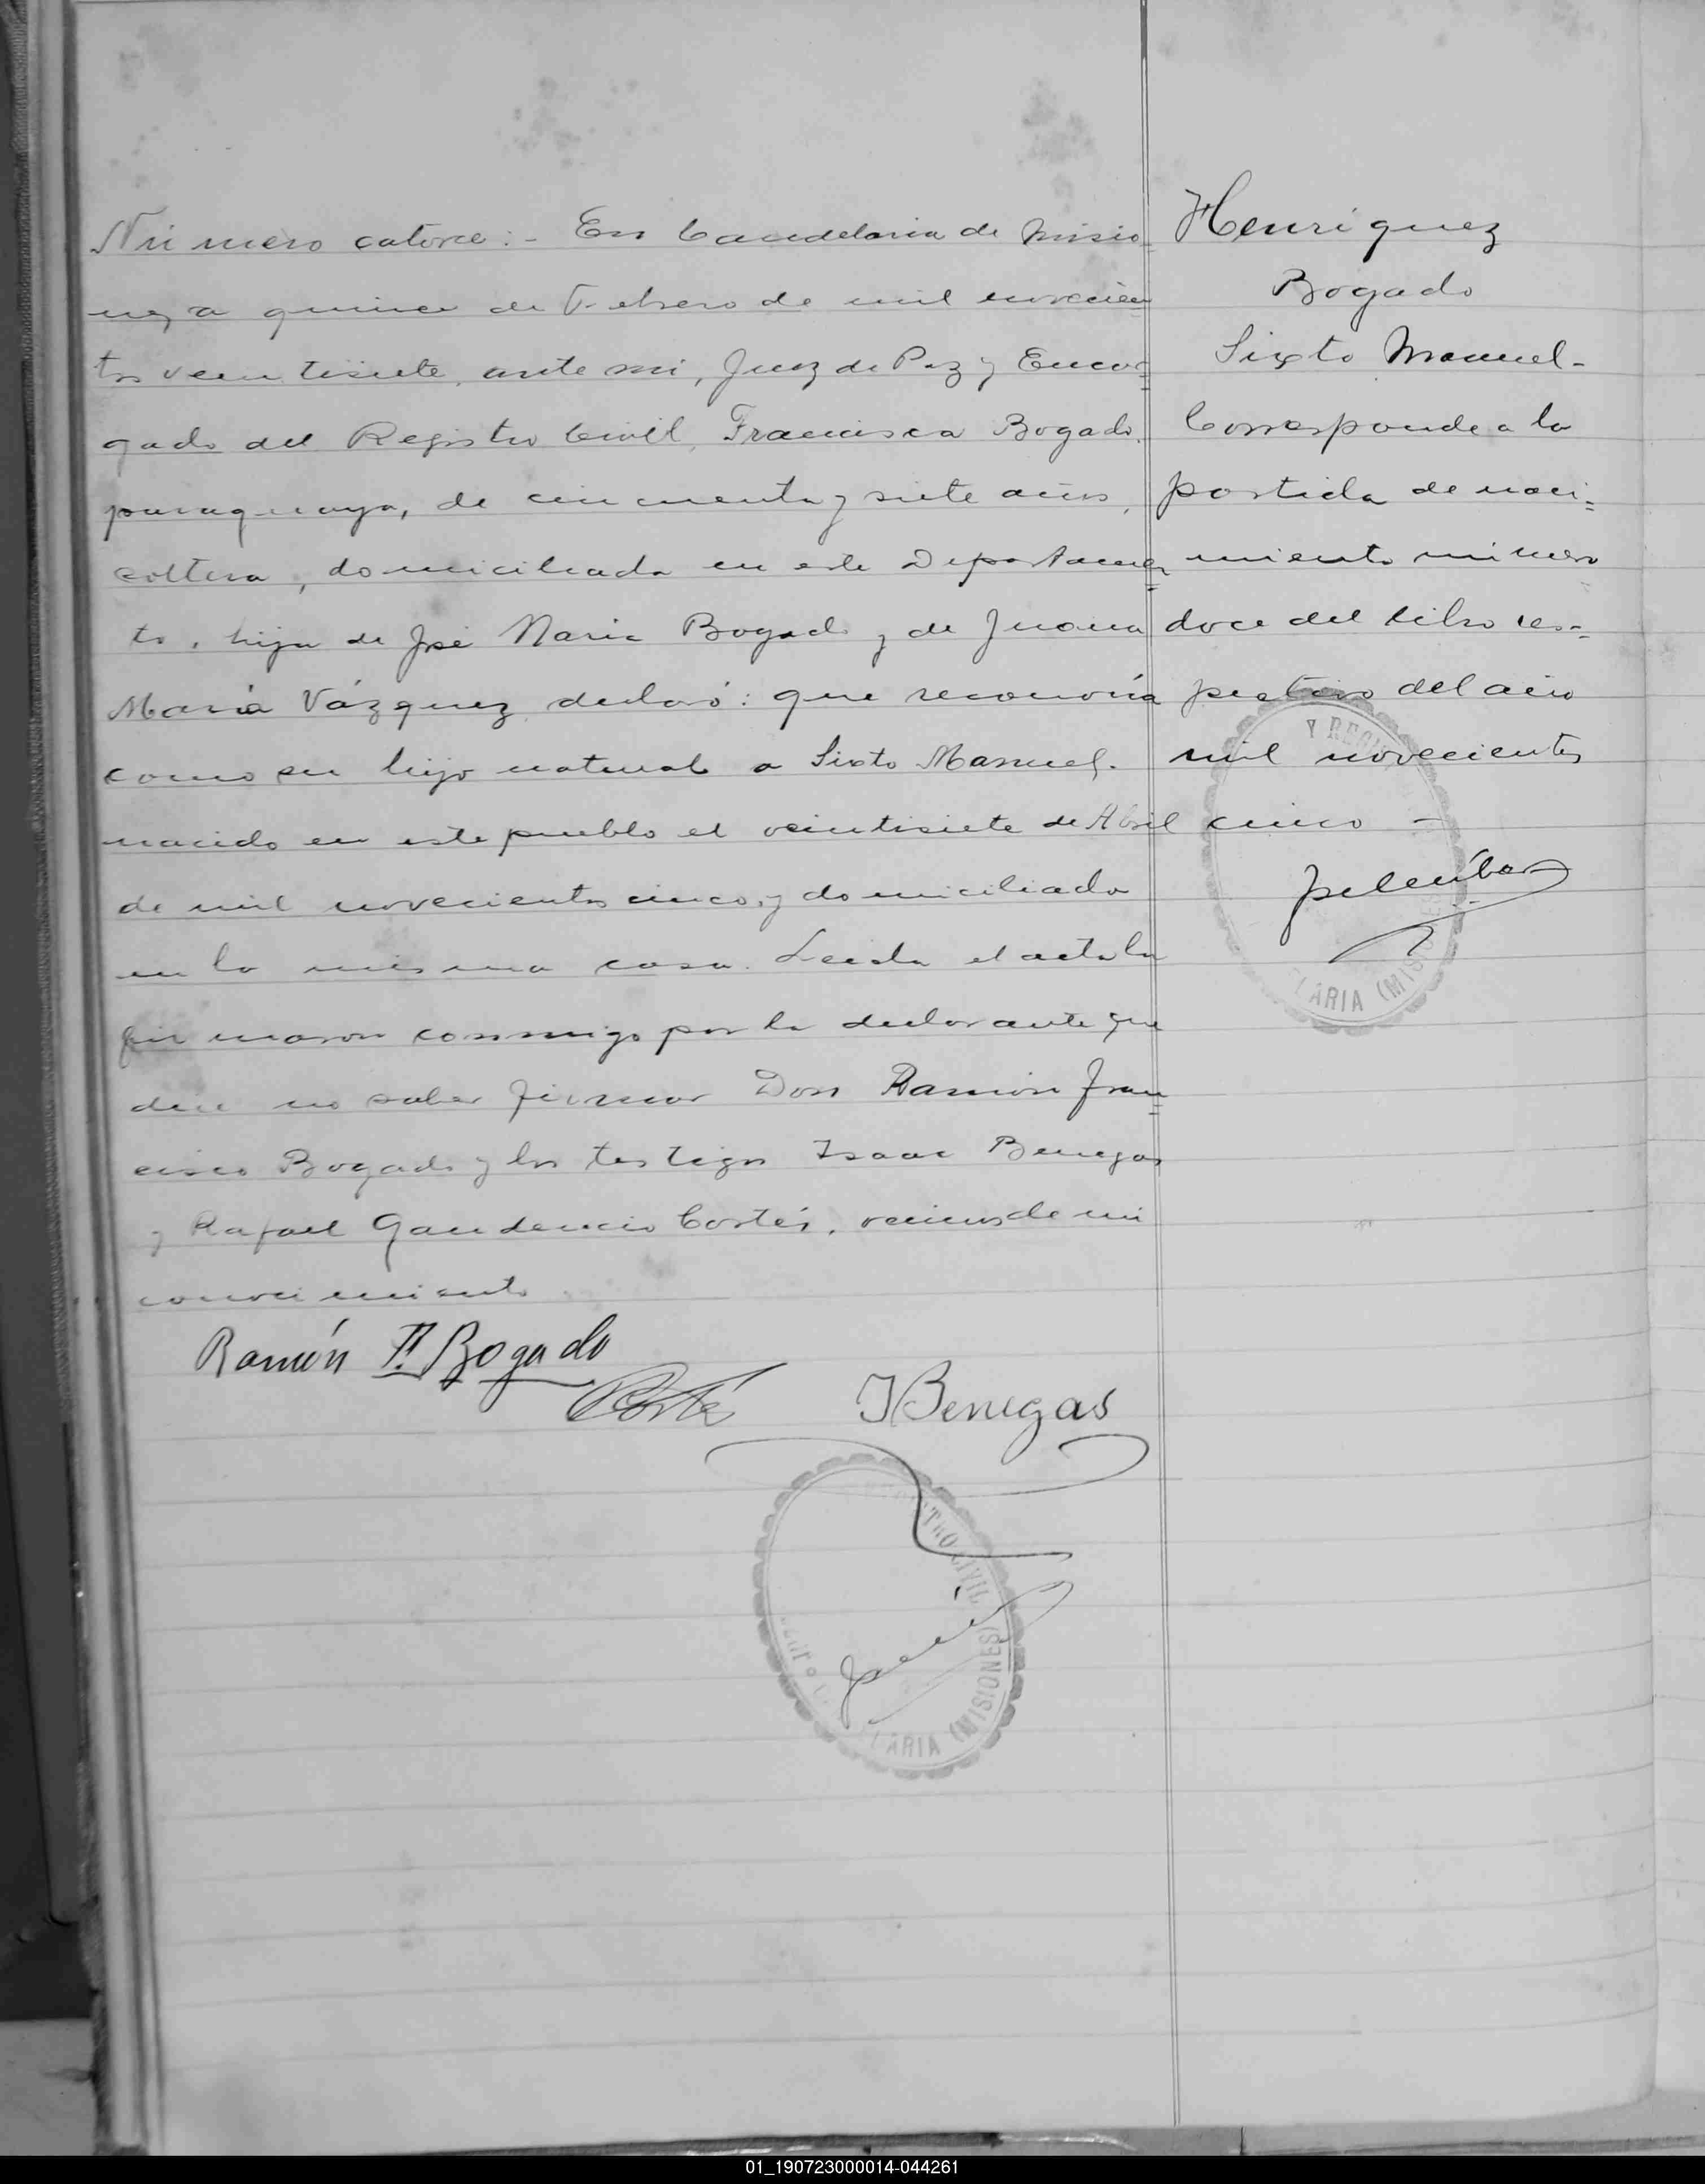 Número catorce:- En Candelaria de Misio-
nes, a quince de Febrero de mil novecien=
tos veintisiete, ante mi, Juez de Paz y Encar=
gado del Registro Civil, Francisca Bogado,
paraguaya, de cincuenta y siete años,
soltera, domiciliada en este Departamen=
to, hija de José María Bogado y de Juana
María Vázquez, declaró: que reconocía
como su hijo natural a Sixto Manuel.
nacido en este pueblo el veintisiete de Abril
de mil novecientos cinco, y domiciliado
en la misma casa. Leida el acta la
firmaron conmigo por la declarante que
dice no saber firmar Don Ramón Fran=
cisco Bogado y los testigos Isaac Benegas
y Rafael Gaudencio Cortés, vecinos de mi
conocimiento
Ramón F. Bogado
Cortés
I Benegas
REGISTRO CIVIL
LARIA (MISIONES)
Henriquez
Bogado
Sixto Manuel-
Corresponde a la
partida de naci=
miento número
doce del libro res-
pectivo del año
mil novecientos
cinco -
Y REGI
LARIA (MISIONES
01_190723000014-044261